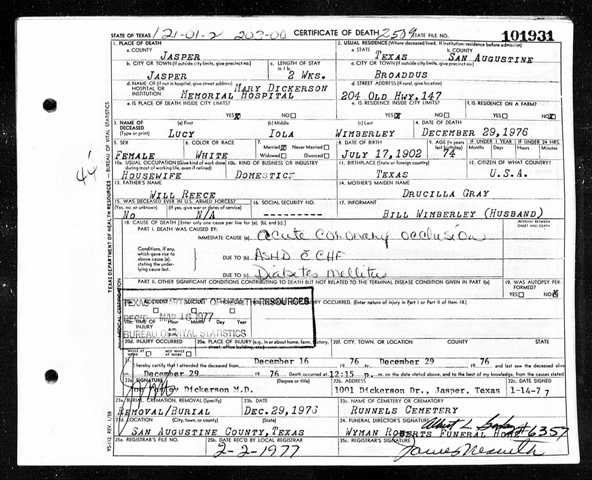 STATE OF TEXAS 121-01-2 203-00 CERTIFICATE OF DEATH STATE FILE NO. 101931
1. PLACE OF DEATH 2. USUAL RESIDENCE (Where deceased lived. If institution: residence before admission)
a. COUNTY a. STATE b. COUNTY
JASPER TEXAS SAN AUGUSTINE
b. CITY OR TOWN (If outside city limits, give precinct no.) c. LENGTH OF STAY c. CITY OR TOWN (If outside city limits, give precinct no.)
JASPER 2 WKS. BROADDUS
d. NAME OF (If not in hospital, give street address) d. STREET ADDRESS
HOSPITAL OR INSTITUTION MARY DICKERSON
MEMORIAL HOSPITAL 204 OLD HWY. 147
e. IS PLACE OF DEATH INSIDE CITY LIMITS? e. IS RESIDENCE INSIDE CITY LIMITS? f. IS RESIDENCE ON A FARM?
YES NO YES NO YES NO
3. NAME OF DECEASED (Type or print) (a) First (b) Middle (c) Last 4. DATE OF DEATH
LUCY IOLA WIMBERLEY DECEMBER 29, 1976
5. SEX 6. COLOR OR RACE 7. Married Never Married Widowed Divorced 8. DATE OF BIRTH 9. AGE IF UNDER 1 YEAR IF UNDER 24 HRS.
FEMALE WHITE JULY 17, 1902 74
10a. USUAL OCCUPATION 10b. KIND OF BUSINESS OR INDUSTRY 12. CITIZEN OF WHAT COUNTRY?
HOUSEWIFE DOMESTIC TEXAS U.S.A.
13. FATHER'S NAME 14. MOTHER'S MAIDEN NAME
WILL REECE DRUCILLA GRAY
15. WAS DECEASED EVER IN U.S. ARMED FORCES? 16. SOCIAL SECURITY NO. 17. INFORMANT
NO N/A BILL WIMBERLEY (HUSBAND)
18. CAUSE OF DEATH
PART I. DEATH WAS CAUSED BY:
IMMEDIATE CAUSE (a) acute coronary occlusion
DUE TO (b) ASHD & CHF
DUE TO (c) Diabetes mellitus
PART II. OTHER SIGNIFICANT CONDITIONS CONTRIBUTING TO DEATH BUT NOT RELATED TO THE TERMINAL DISEASE CONDITION GIVEN IN PART I(a) 19. WAS AUTOPSY PERFORMED?
YES NO
TEXAS DEPARTMENT OF HEALTH RESOURCES
REC'D MAR 16 1977
BUREAU OF VITAL STATISTICS
20d. INJURY OCCURRED 20e. PLACE OF INJURY 20f. CITY, TOWN, OR LOCATION COUNTY STATE
I hereby certify that I attended the deceased from December 16 76 December 29 76
December 29 76 Death occurred at 12:15 p. m.
22a. SIGNATURE (Degree or title) 22b. ADDRESS 22c. DATE SIGNED
Dickerson M.D. 1001 Dickerson Dr., Jasper, Texas 1-14-77
23a. BURIAL, CREMATION, REMOVAL (Specify) 23b. DATE 23c. NAME OF CEMETERY OR CREMATORY
REMOVAL/BURIAL DEC. 29, 1976 RUNNELS CEMETERY
23d. LOCATION (City, town, or county) (State) 24. FUNERAL DIRECTOR'S SIGNATURE
SAN AUGUSTINE COUNTY, TEXAS WYMAN ROBERTS FUNERAL HOME #6357
25a. REGISTRAR'S FILE NO. 25b. DATE REC'D BY LOCAL REGISTRAR 25c. REGISTRAR'S SIGNATURE
2-2-1977 James Nesmith
TEXAS DEPARTMENT OF HEALTH RESOURCES — BUREAU OF VITAL STATISTICS
MEDICAL CERTIFICATION